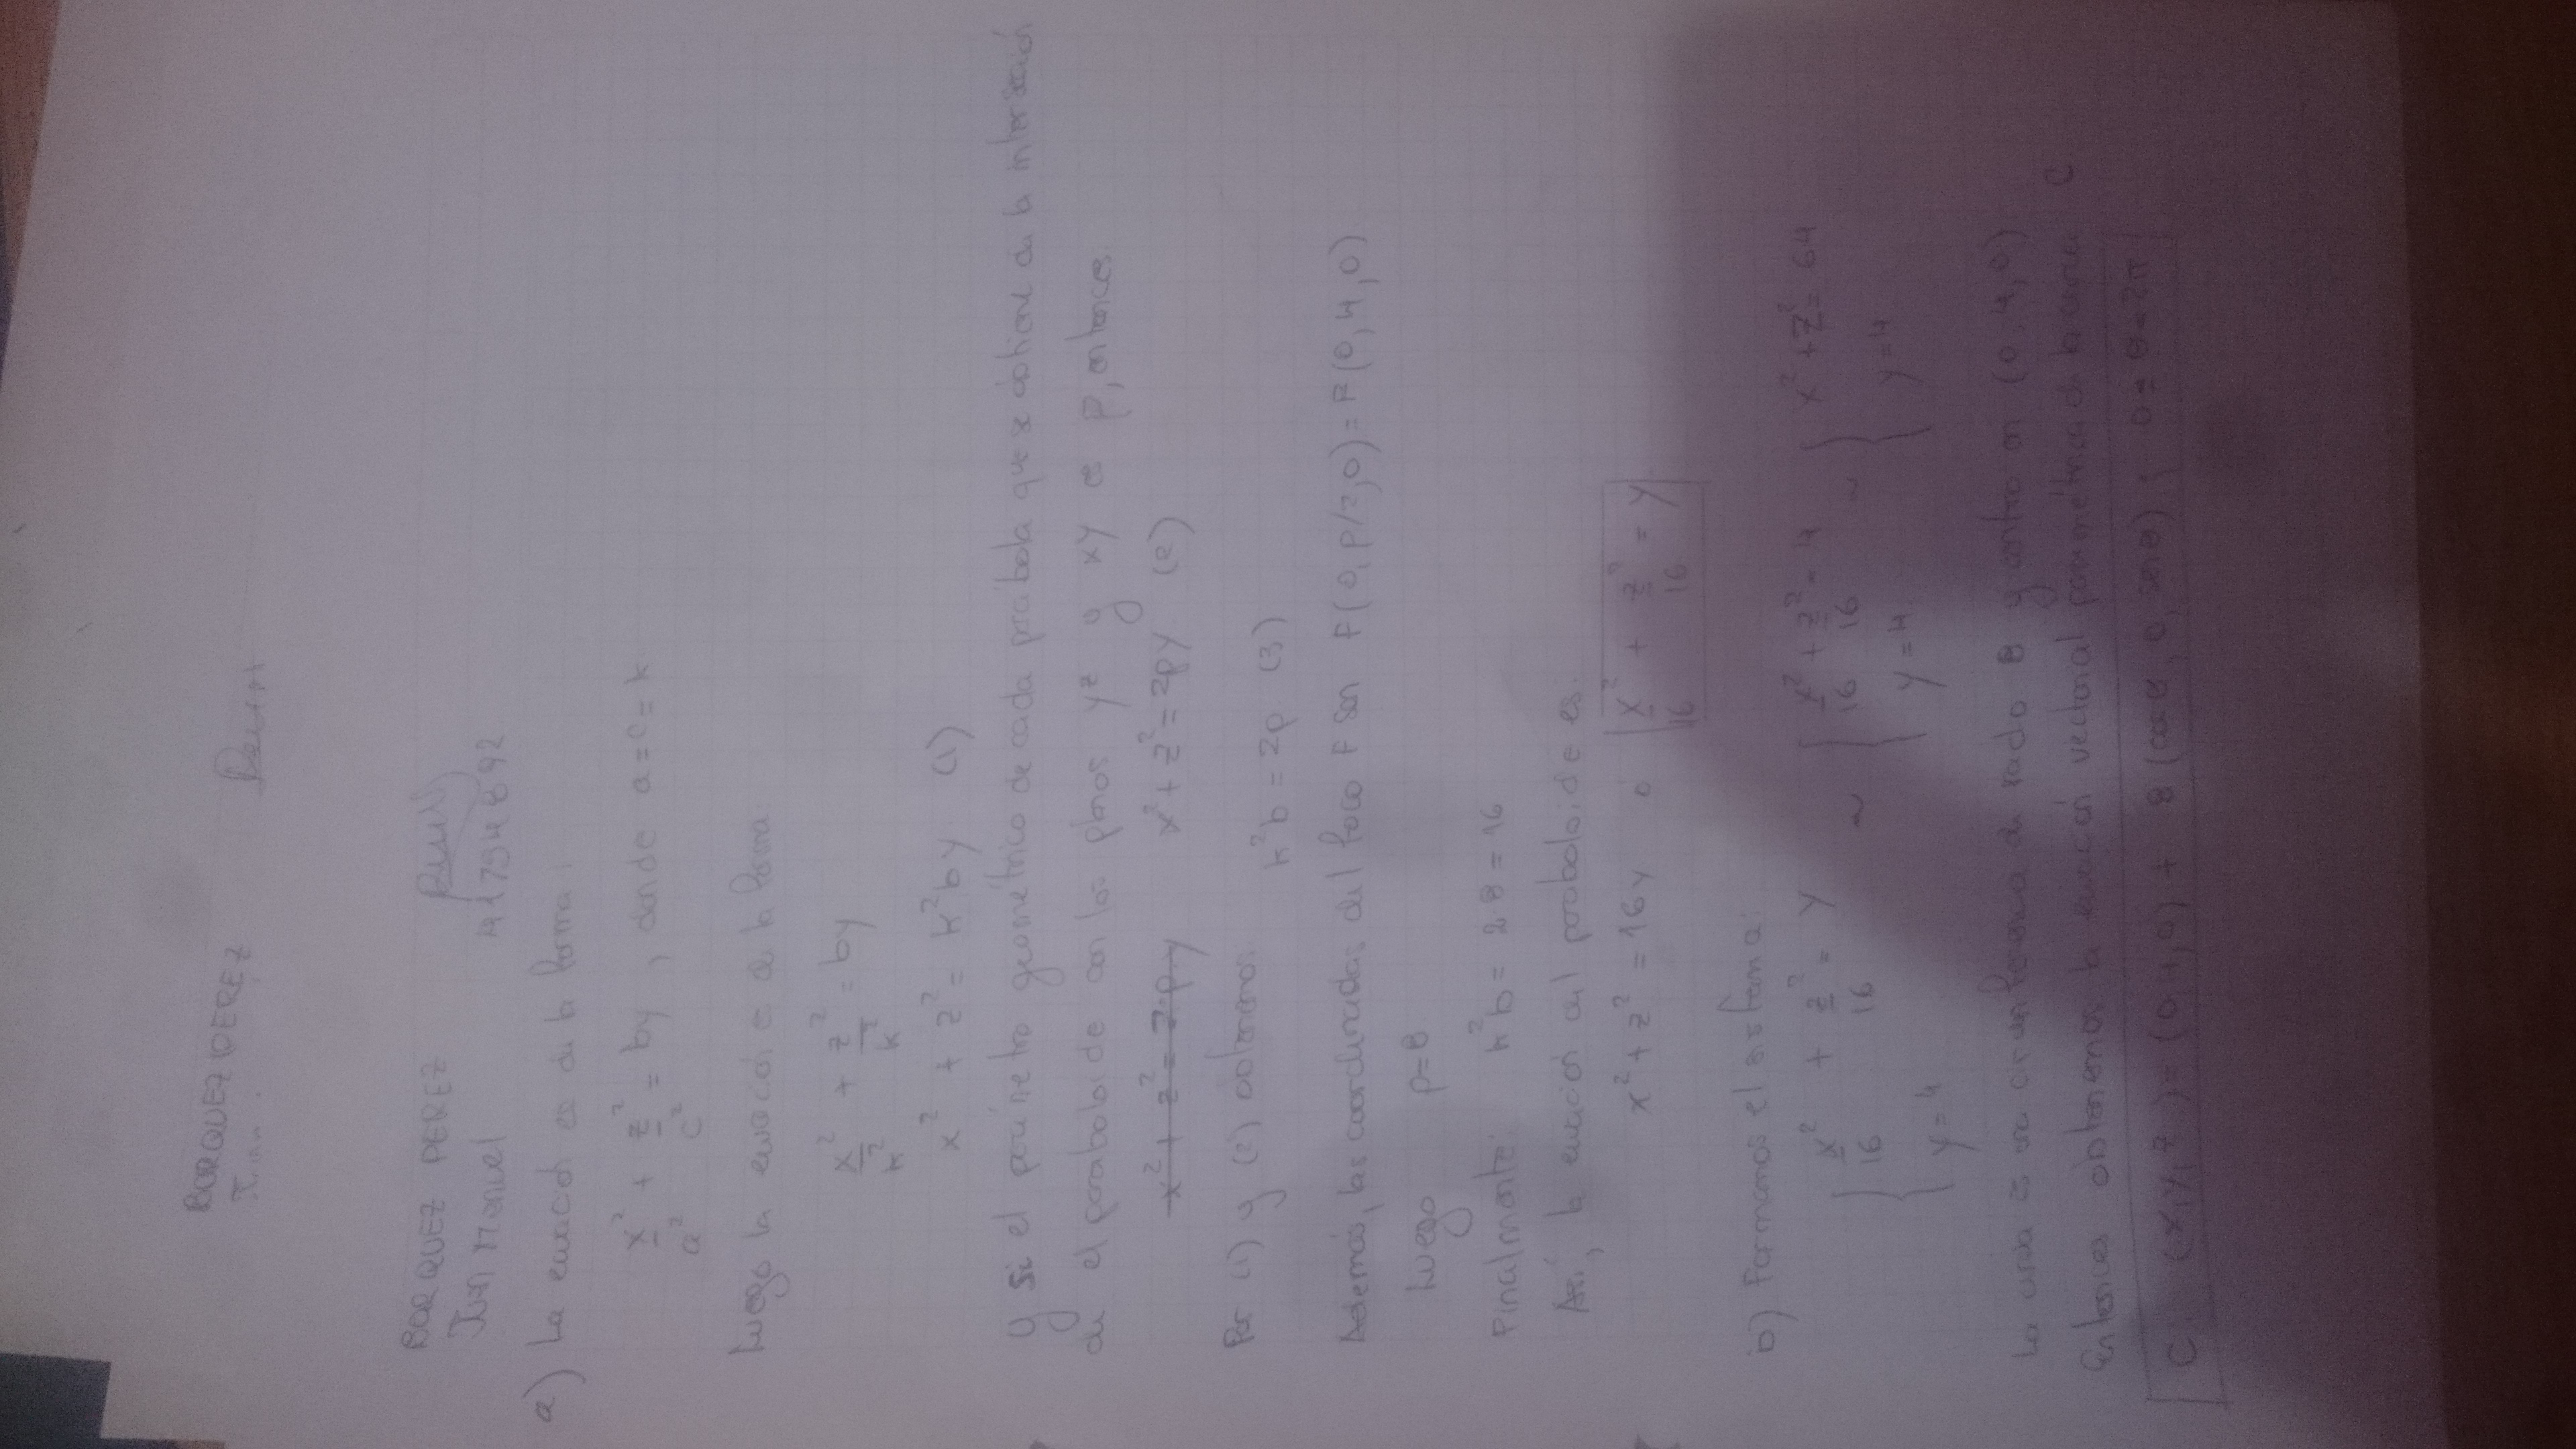 BORQUEZ PEREZ
BORQUEZ PEREZ
Juan Manuel
a) La ecuación es de la forma:
x²/a² + z²/c² = by , donde a = c = k
Luego la ecuación es de la forma:
x²/k² + z²/k² = by
x² + z² = k²by (1)
y si el parámetro geométrico de cada parábola que se obtiene de la intersección
de el paraboloide con los planos yz y xy es p, entonces
x² + z² = 2py x² + z² = 2py (2)
Por (1) y (2) obtenemos: k²b = 2p (3)
Además, las coordenadas del foco F son F(0, p/2, 0) = F(0, 4, 0)
Luego p = 8
Finalmente: k²b = 2 8 = 16
Así, la ecuación del paraboloide es:
x² + z² = 16y ó x²/16 + z²/16 = y
b) Formamos el sistema:
{ x²/16 + z²/16 = y ~ { x²/16 + z²/16 = 4 ~ { x² + z² = 64
{ y = 4 { y = 4 { y = 4
La curva es una circunferencia de radio 8 y centro en (0, 4, 0)
Entonces obtenemos la ecuación vectorial paramétrica de la curva C
C: (x, y, z) = (0, 4, 0) + 8 (cos θ, 0, sen θ) ; 0 ≤ θ ≤ 2π